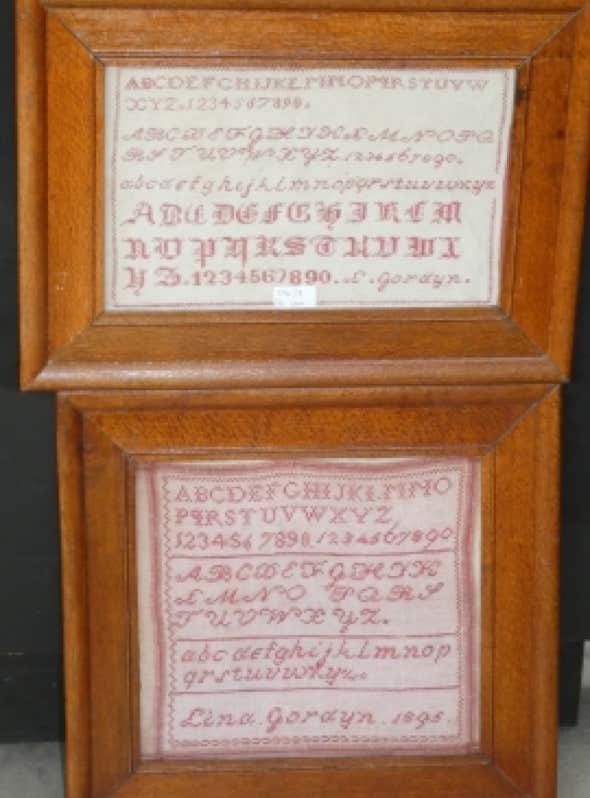 ABCDEFGHIJKLMNOPQRSTUVW
XYZ.1234567890.
ABCDEFGHIKLMNOPQ
RSTUVWXYZ.1234567890.
abcdefghijklmnopqrstuvwxyz
ABCDEFGHIKLM
NOPQRSTUVWX
YZ.1234567890.L.Gordyn.
ABCDEFGHIJKLMNO
PQRSTUVWXYZ
1234567890.1234567890
ABCDEFGHIK
LMNOPQRS
TUVWXYZ.
abcdefghijklmnop
qrstuvwxyz.
Lina.Gordyn.1895.